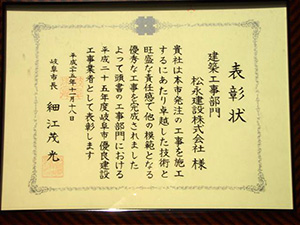 表彰状
建築工事部門
松永建設株式会社 様
貴社は本市発注の工事を施工
するにあたり卓越した技術と
旺盛な責任感で他の模範となる
優秀な工事を完成されました
よって頭書の工事部門における
平成二十五年度岐阜市優良建設
工事業者として表彰します
平成二十五年十一月十八日
岐阜市長 細江茂光